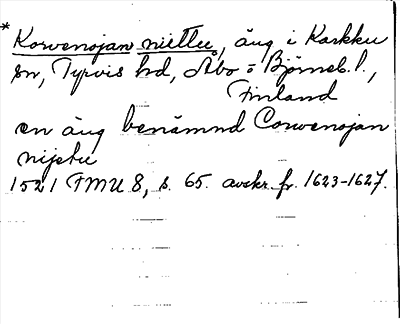 * Korvenojan niittu, äng i Karkku
sn, Tyrvis hd, Åbo o Björneb. l.,
Finland
en äng benämnd Corvenojan
nijttu
1521 FMU 8, s. 65. avskr. fr. 1623-1627.